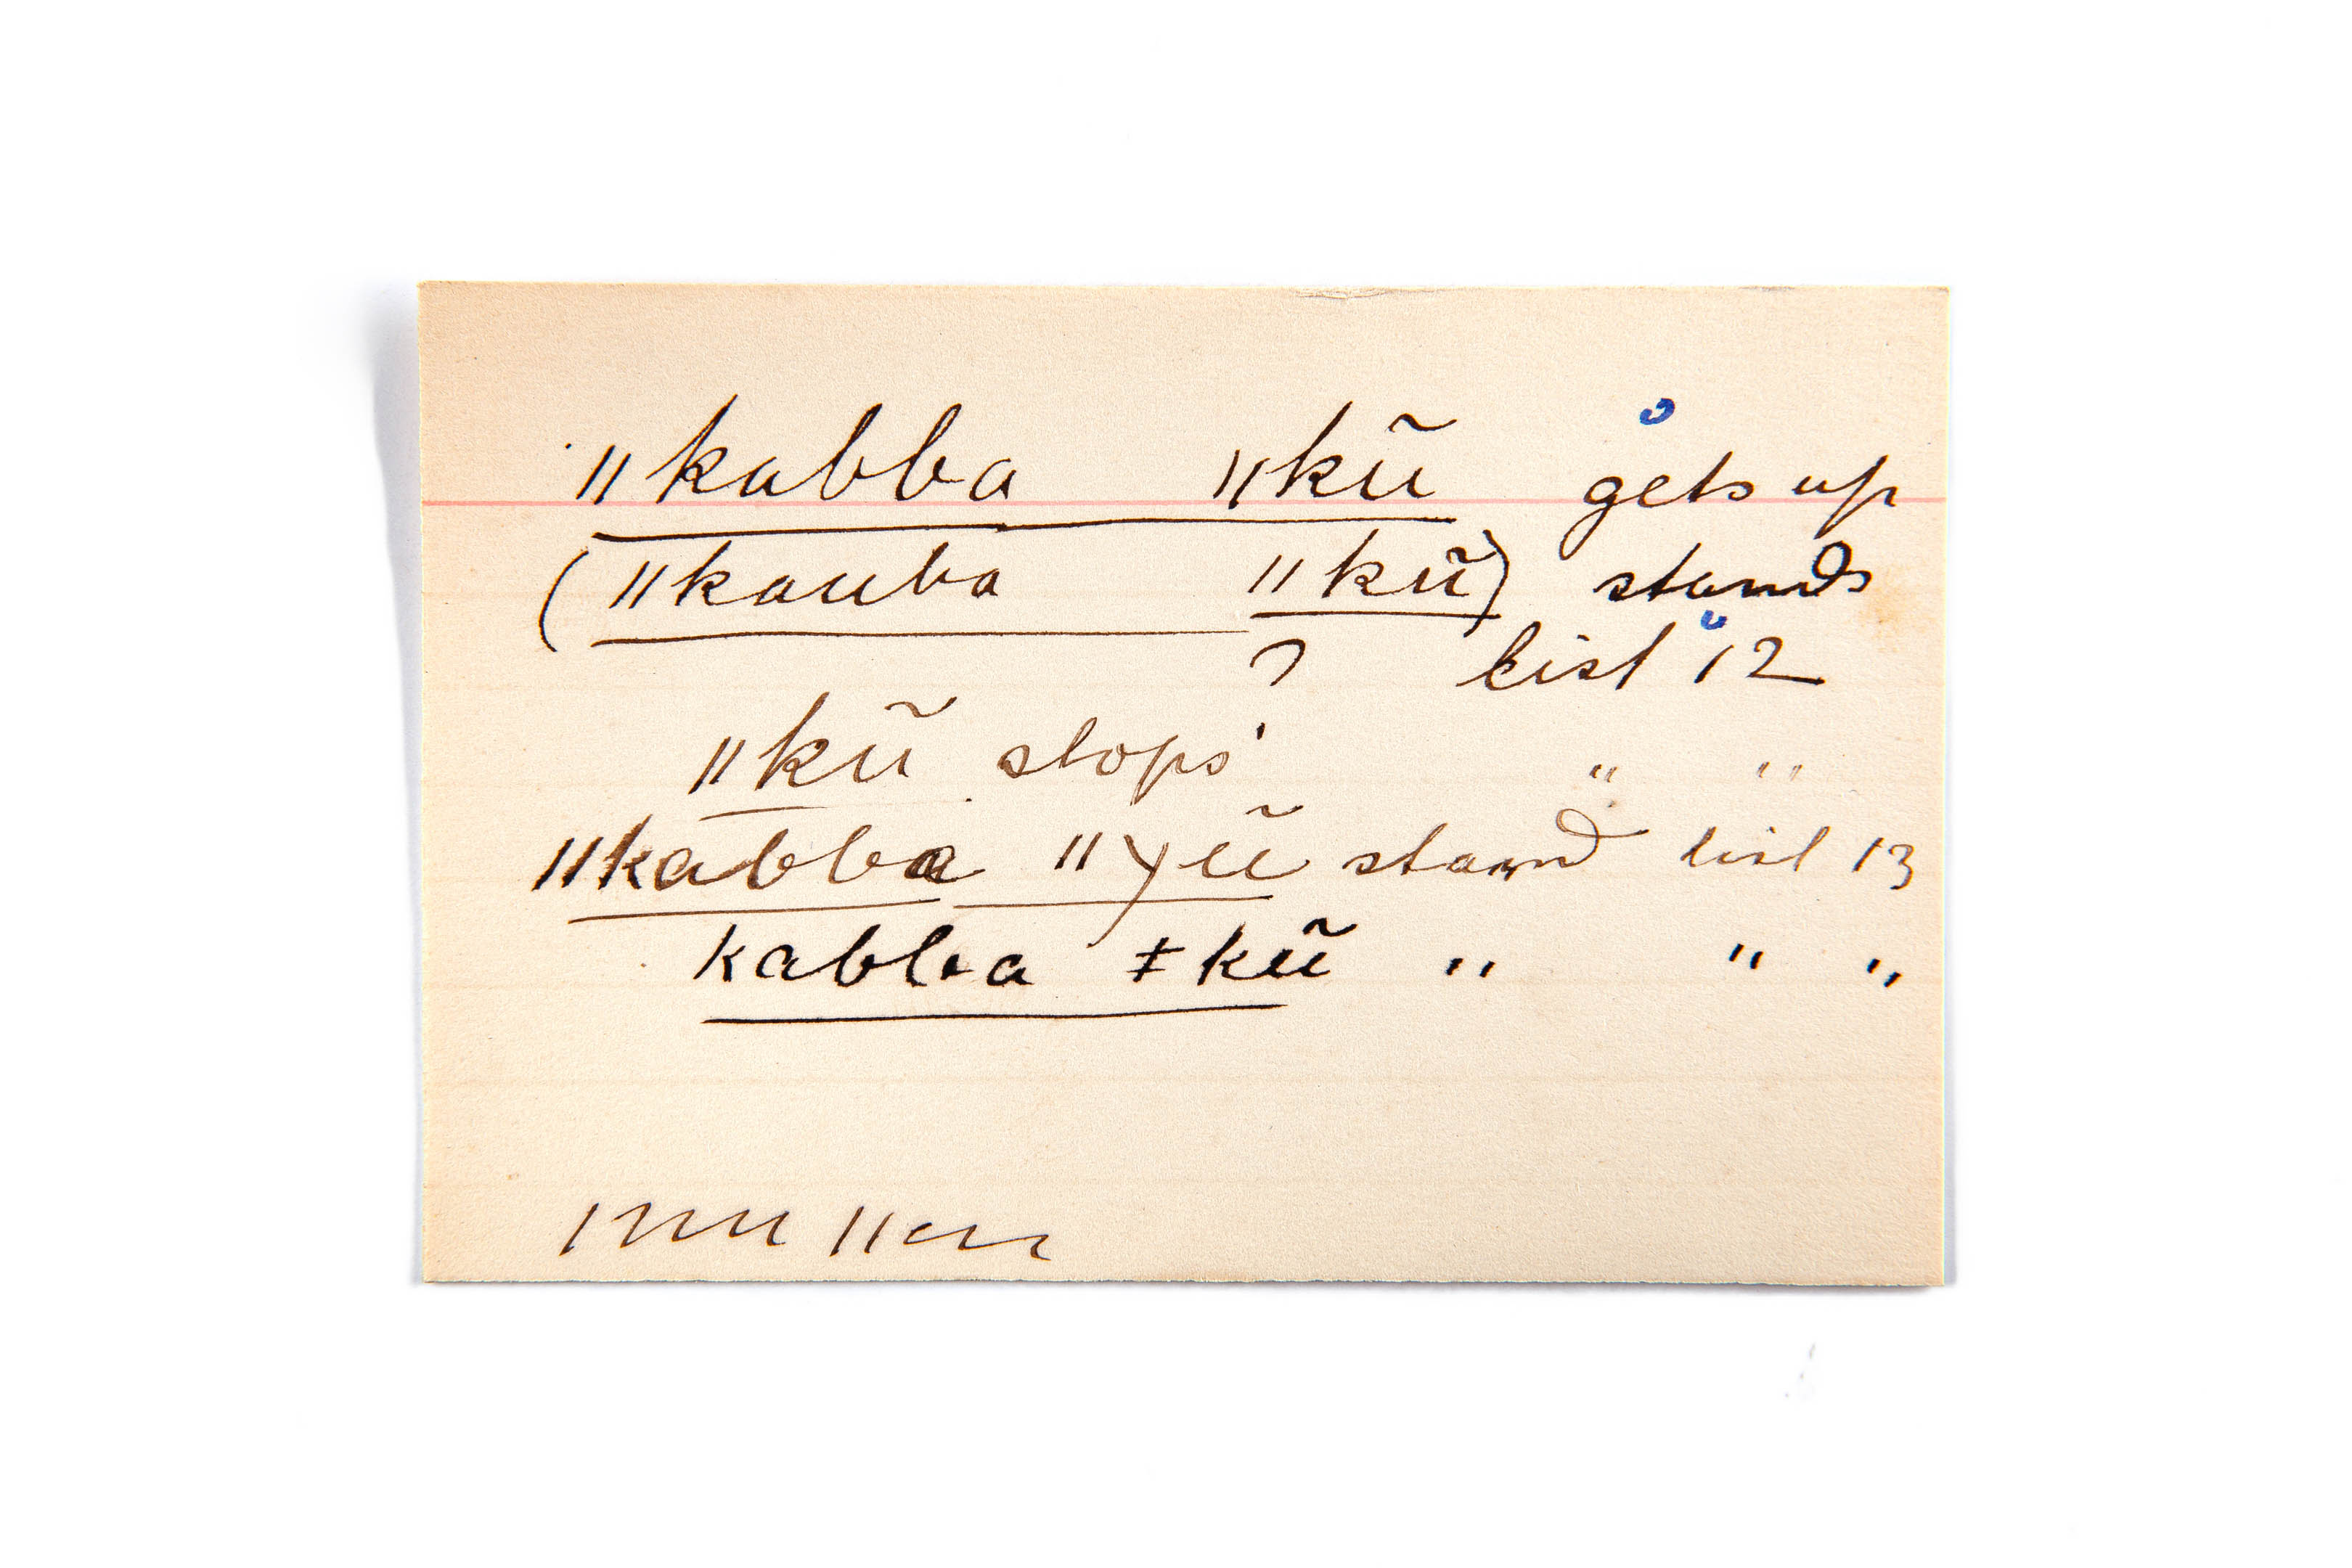 ǁkabba ǁkũ gets up
(ǁkauba ǁkũ) stands
? list 12
ǁkũ stops " "
ǁkabba ǁyũ stand list 13
kabba ǂkũ " " "
ǀnu ǁen